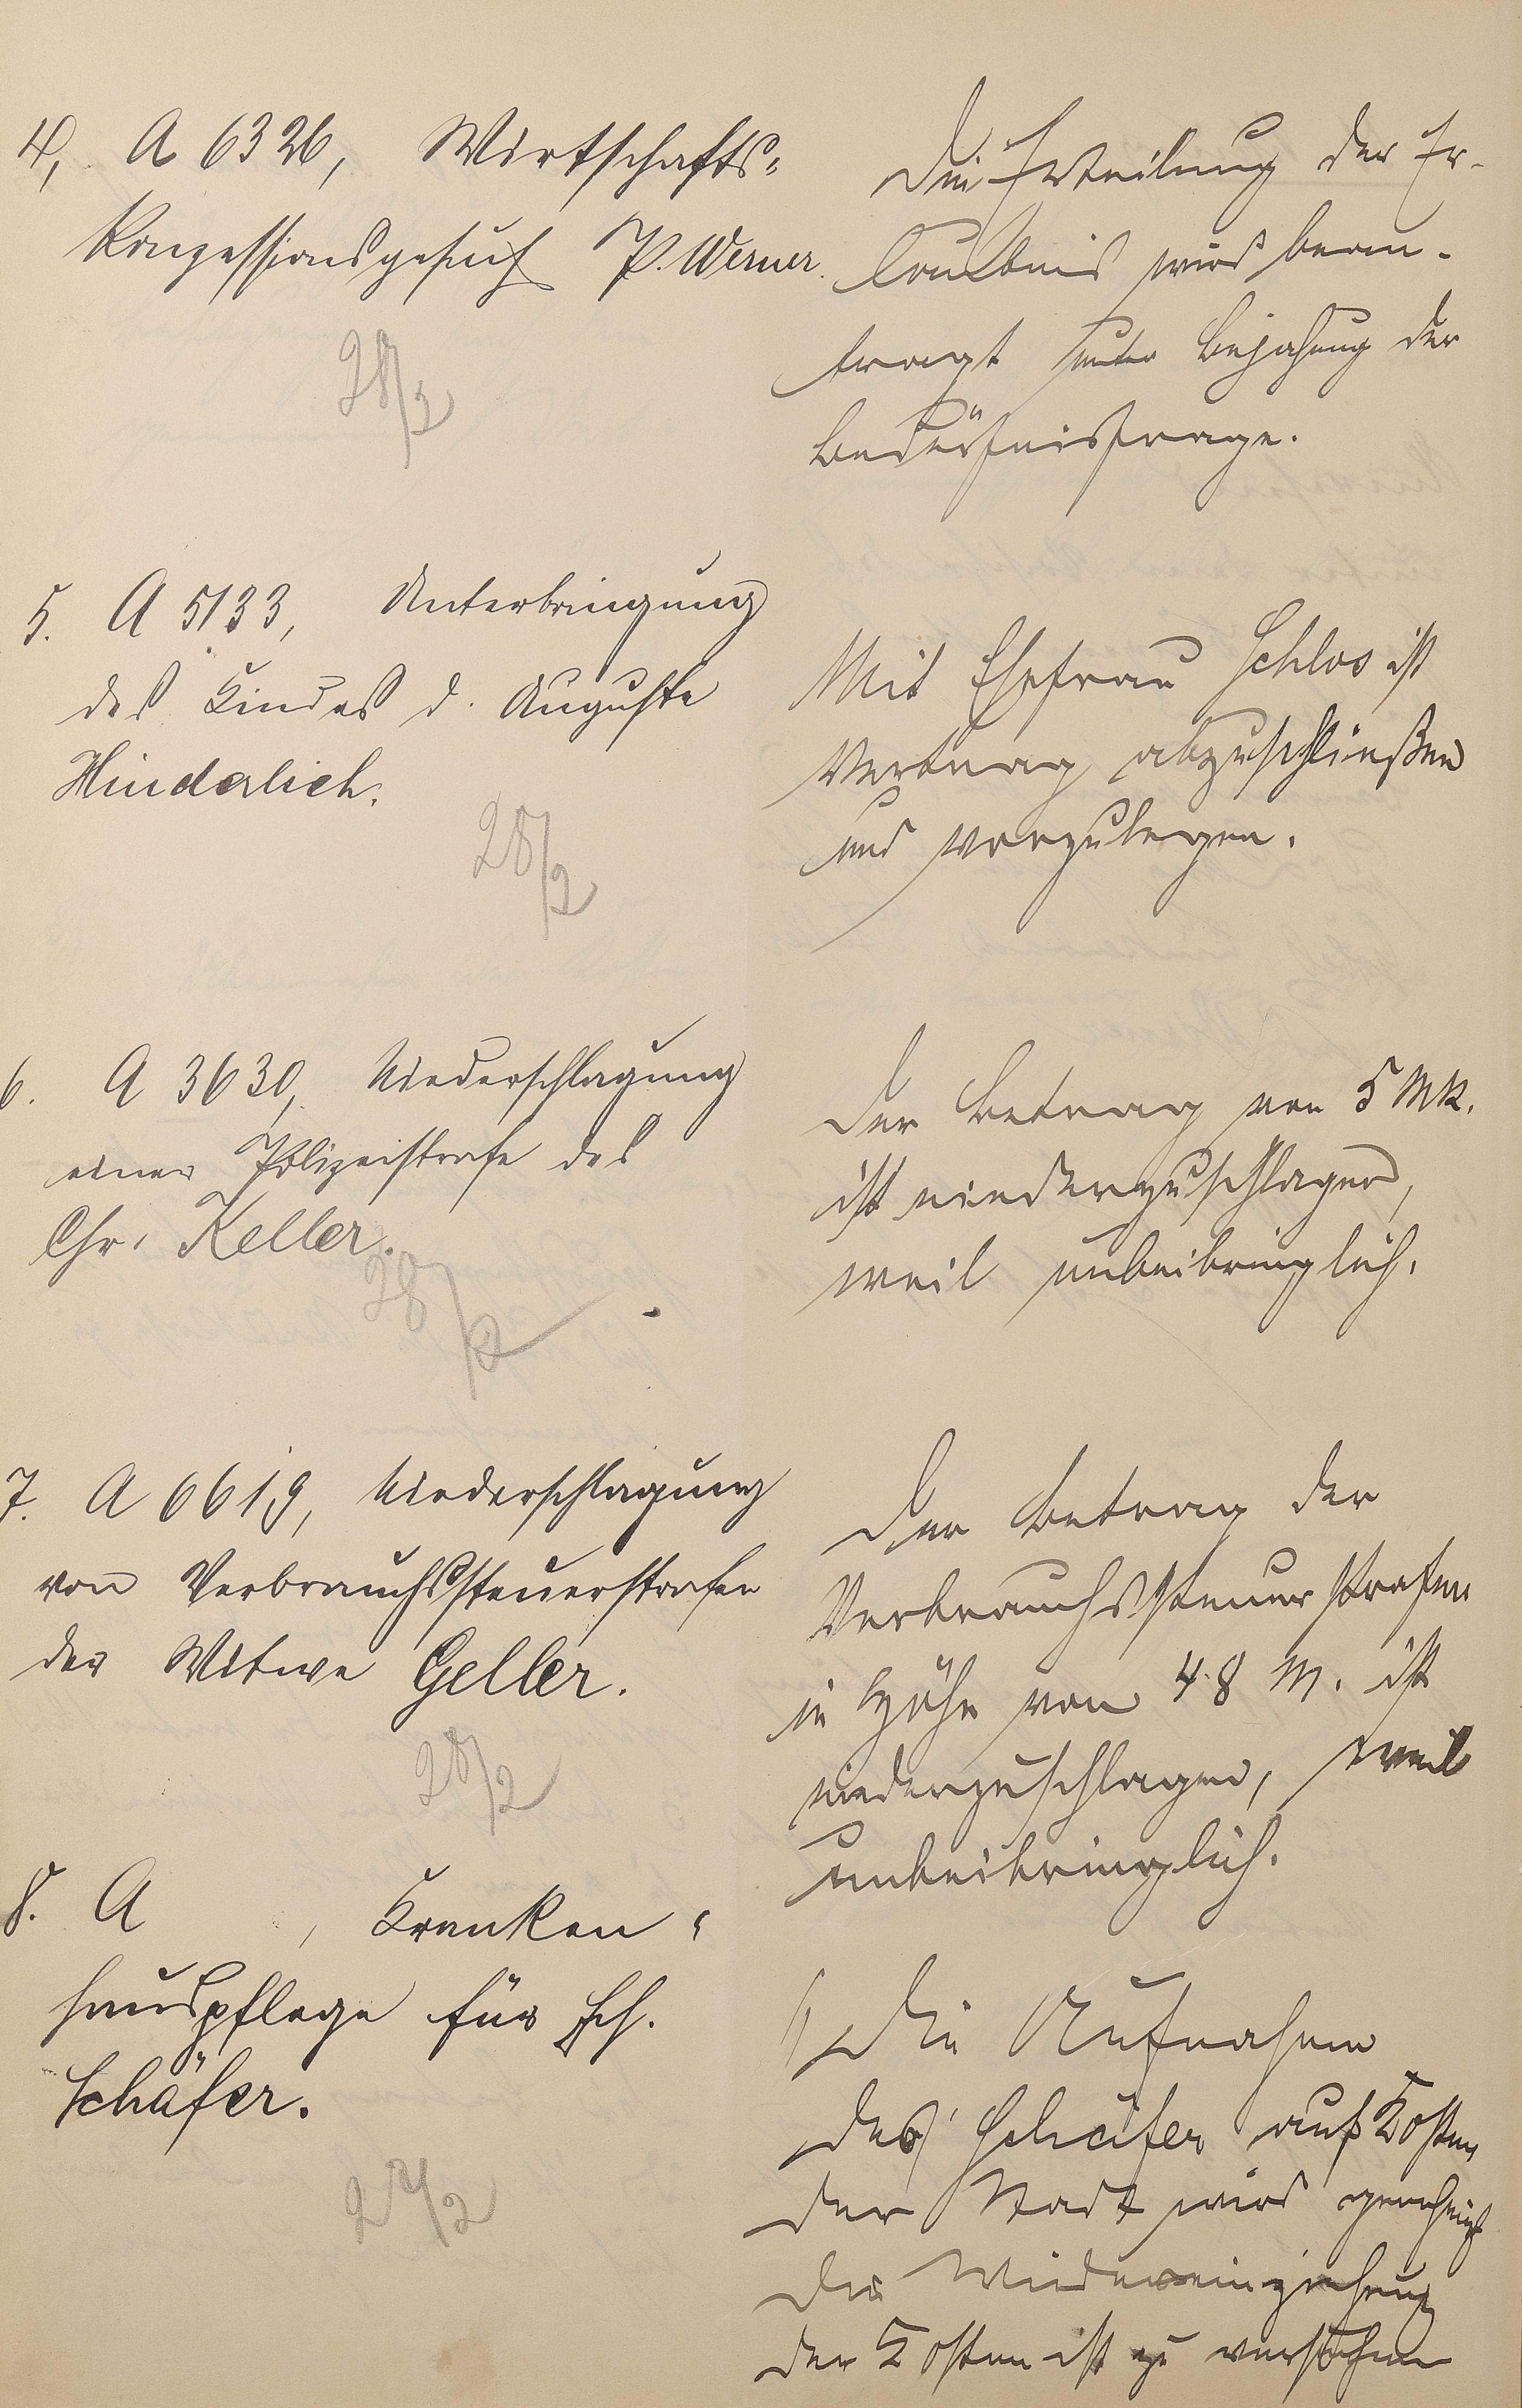 4, A 6326, Wirtschafts=
Konzessionsgesuch P. Werner.
28/2
Die Erteilung der Er-
laubnis wird bean-
tragt unter Bejahung der
Bedürfnisfrage.
5. A 5133, Unterbringung
des Kindes d. Auguste
Hinderlich.
28/2
Mit Ehefrau Schlos ist
Vertrag abzuschließen
und vorzulegen.
6. A 3630, Niederschlagung
einer Polizeistrafe des
Chr. Keller.
28/2
Der Betrag von 5 Mk.
ist niederzuschlagen,
weil unbeibringlich.
7. A 6619, Niederschlagung
von Verbrauchssteuerstrafen
der Witwe Geller.
28/2
Der Betrag der
Verbrauchssteuerstrafen
in Höhe von 48 M. ist
niederzuschlagen, weil
unbeibringlich.
8. A , Kranken=
hauspflege für
Schäfer.
2/2
1, Die Aufnahme
des Schäfer auf Kosten
der Stadt wird genehmigt
Die Wiedereinziehung
der Kosten ist zu versuchen